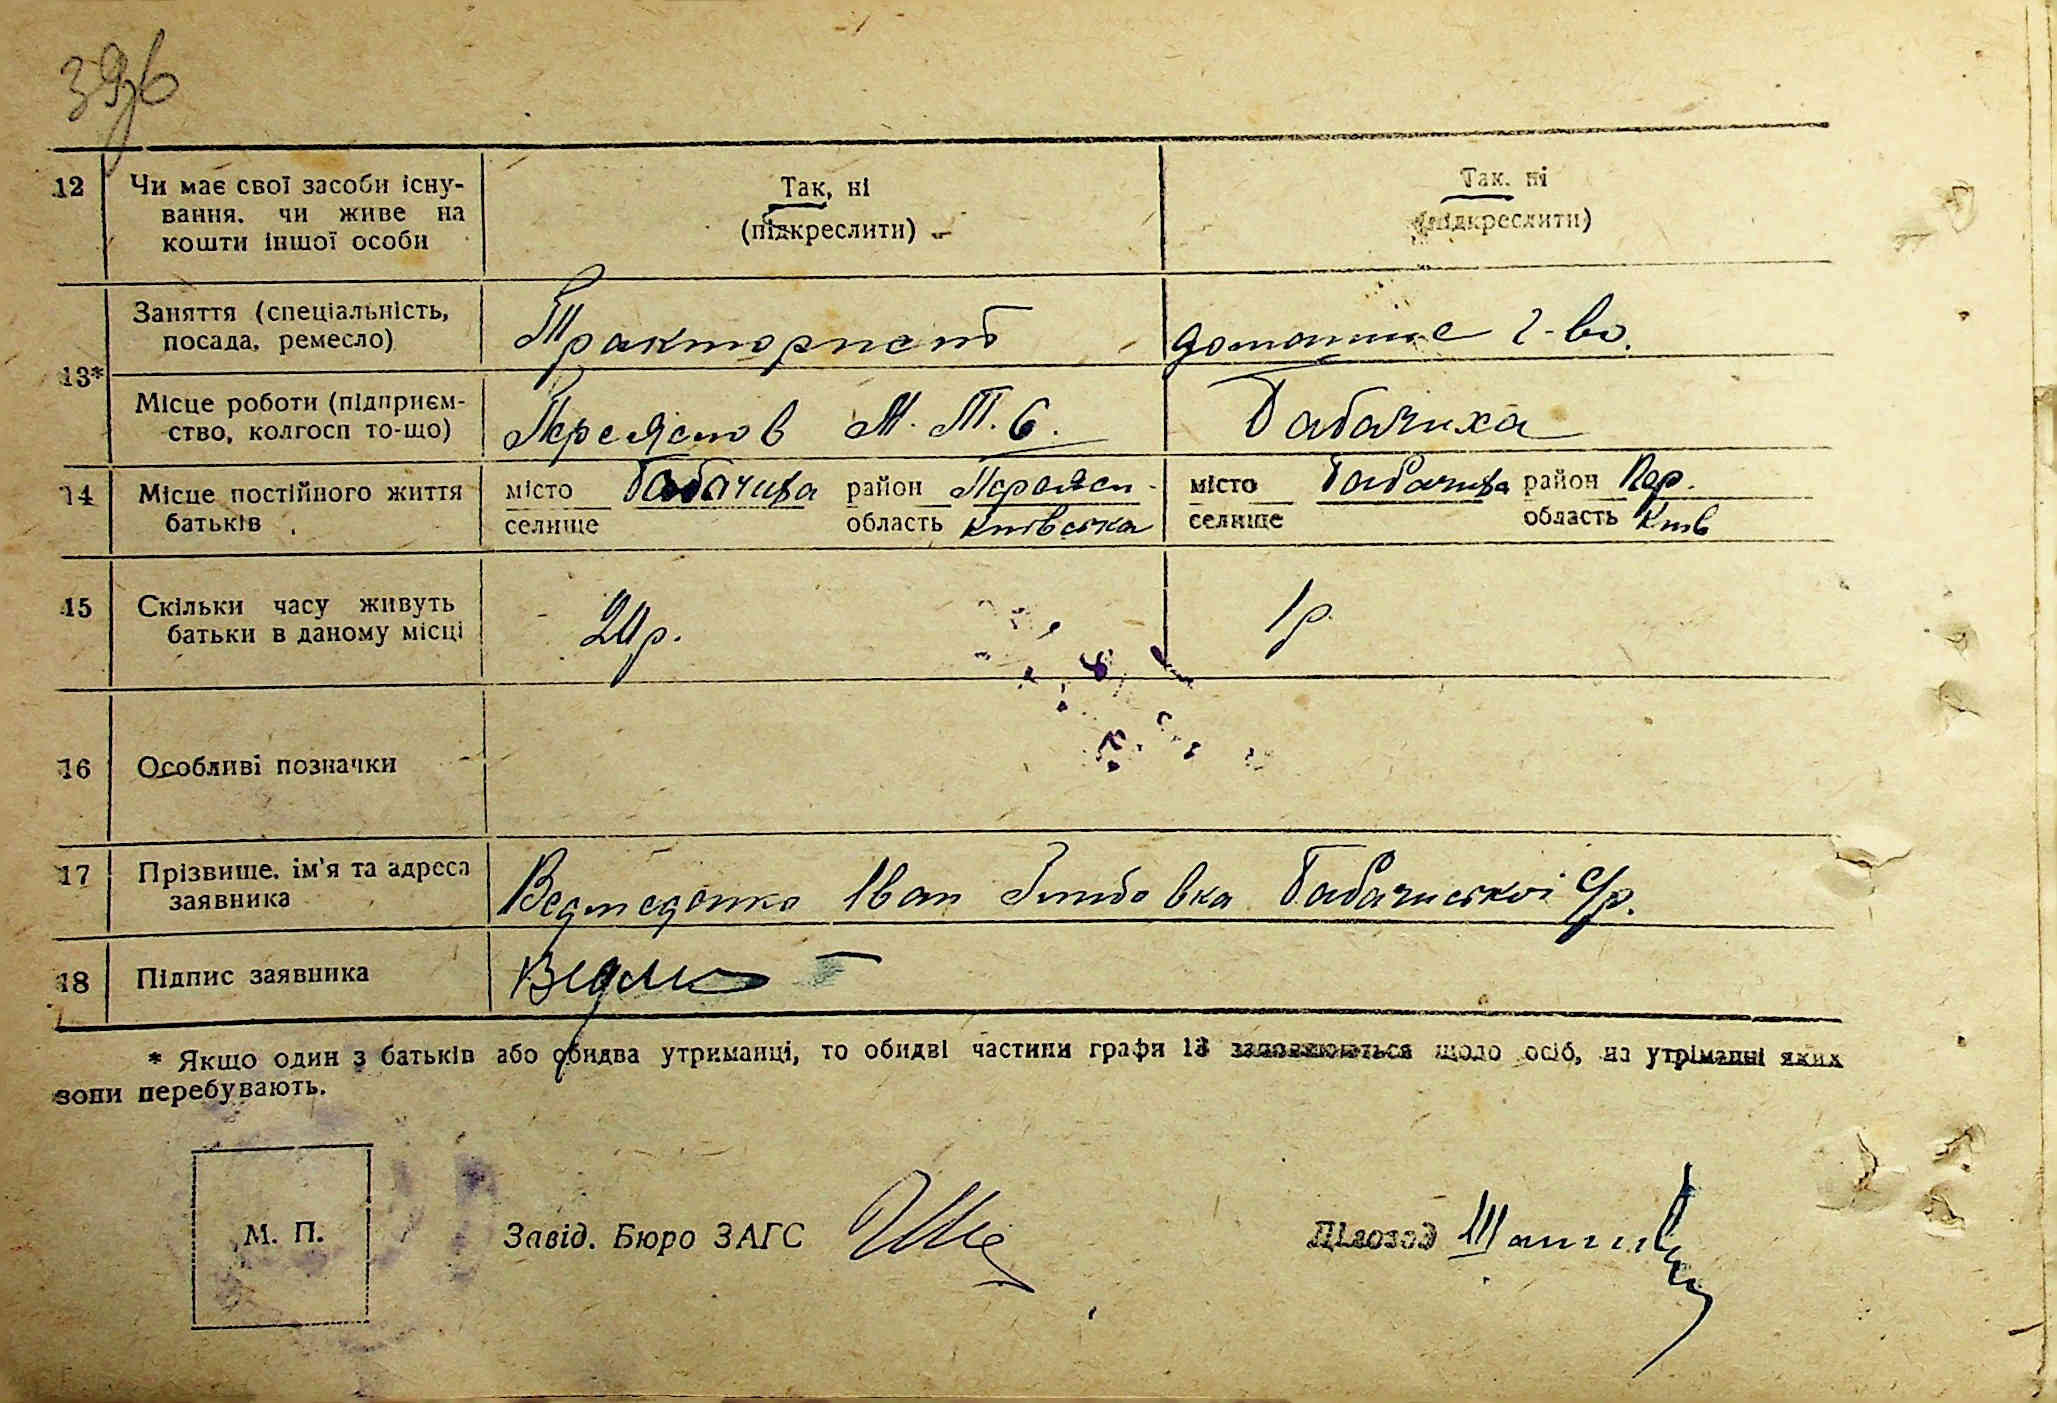 396
12 Чи має свої засоби існу- Так, ні Так. ні
вання. чи живе на (підкреслити) (підкреслити)
кошти іншої особи
13* Заняття (спеціальність, Тракторист домашнє г-во.
посада, ремесло)
Місце роботи (підприєм- Переяслов М.Т.С. Бабачиха
ство, колгосп то-що)
14 Місце постійного життя місто Бабачиха район Переясл. місто Бабачиха район Пер.
батьків селище область Київська селище область Київ
15 Скільки часу живуть 24р. 1р.
батьки в даному місці
16 Особливі позначки
17 Прізвище. ім'я та адреса Ведмеденко Іван Бабачиської с/р.
заявника
18 Підпис заявника
* Якщо один з батьків або обидва утриманці, то обидві частини графи 13 заповнюються щодо осіб, на утріманні яких
вони перебувають.
М. П. Завід. Бюро ЗАГС Діловод